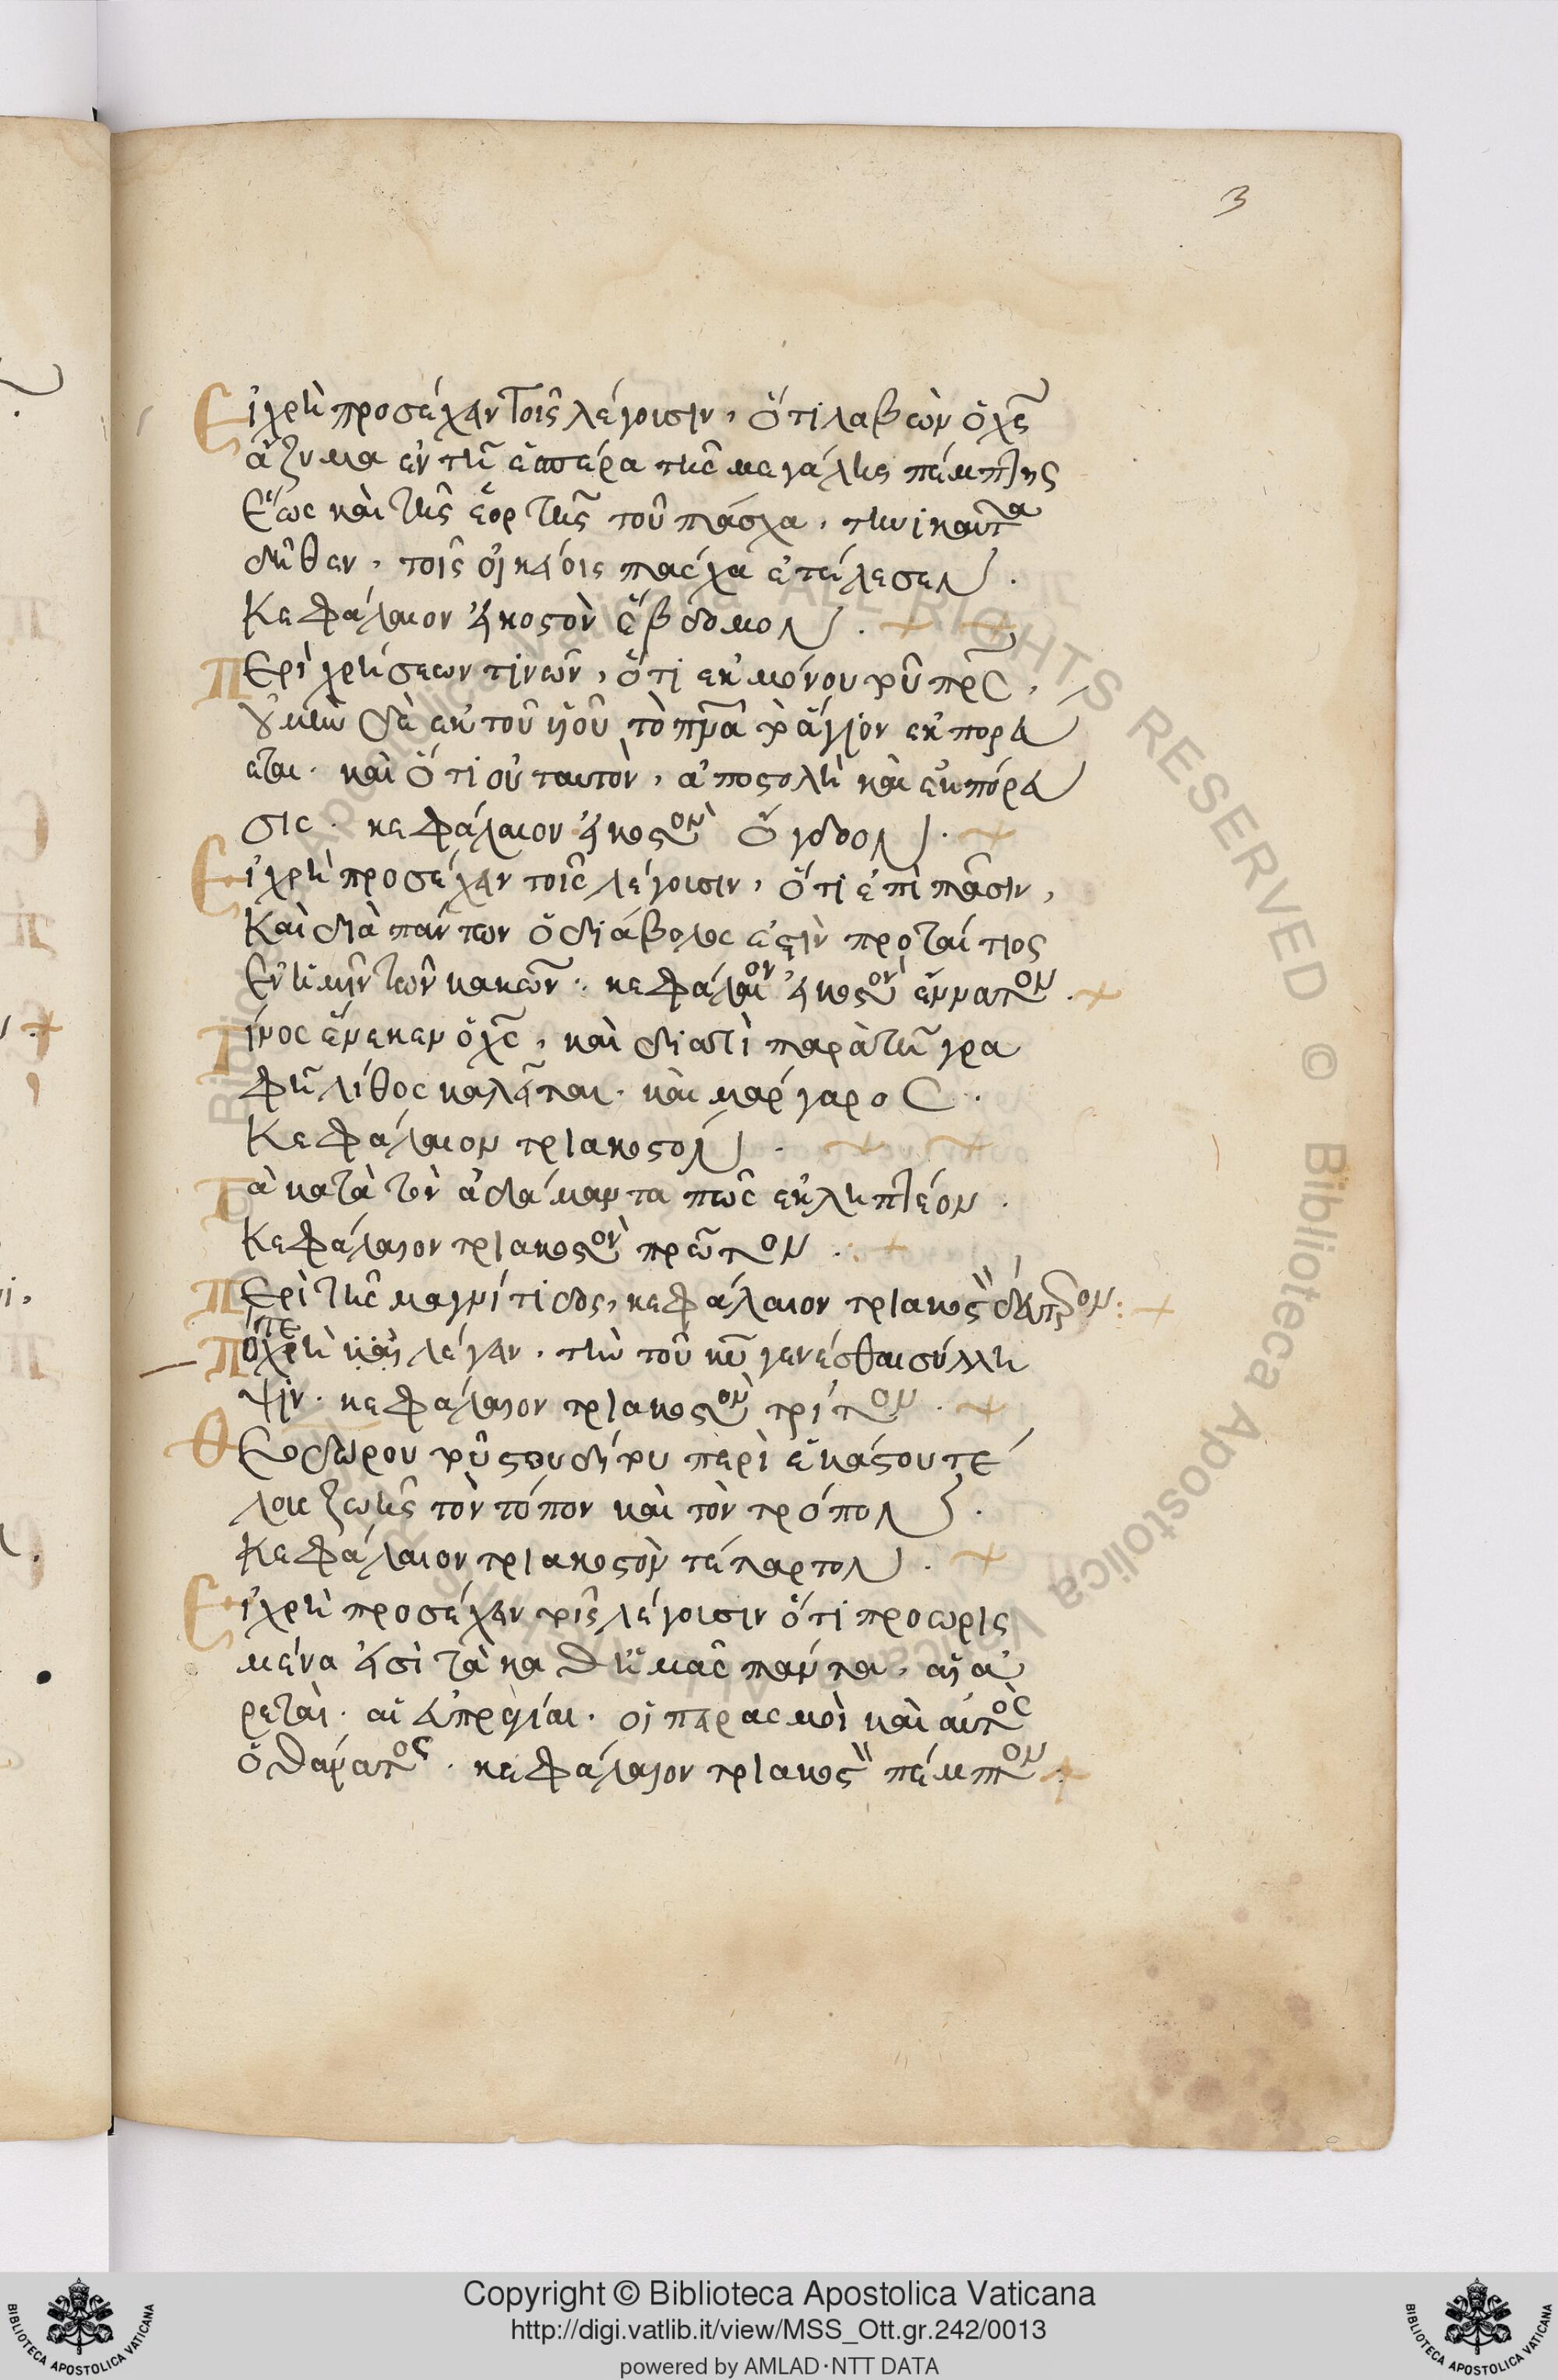 3
Εἰ χρὴ προσέχειν τοῖς λέγουσιν, ὅτι λαβὼν ὁ χς
ἄζυμα ἐν τῇ ἑσπέρα τῆς μεγάλης πέμπτης
ἕως καὶ τῆς ἑορτῆς τοῦ πάσχα, τηνικαῦτα
δῆθεν, τοῖς οἰκείοις πάσχα ἐτέλεσεν.
Κεφάλαιον εἰκοστὸν ἕβδομον.
Περὶ χρήσεων τινῶν, ὅτι ἐκ μόνου τοῦ πρς,
οὐ μὴν δὲ ἐκ τοῦ υἱοῦ τὸ πνα τὸ ἅγιον ἐκπορεύ
εται. καὶ ὅτι οὐ ταυτὸν, ἀποστολὴ καὶ ἐκπόρευ
σις. κεφάλαιον εἰκοστὸν ὄγδοον.
Εἰ χρὴ προσέχειν τοῖς λέγουσιν, ὅτι ἐπὶ πᾶσιν,
καὶ διὰ πάντων ὁ διάβολος ἐστὶν προταίτιος
ἐν ἡμῖν τῶν κακῶν. κεφάλαιον εἰκοστὸν ἔννατον.
Τίνος ἕνεκεν ὁ χς, καὶ διατὶ παρὰ τῇ γρα
φῇ λίθος καλεῖται. καὶ μάργαρος.
Κεφάλαιον τριακοστόν.
Τὰ κατὰ τὸν ἀδάμαντα πῶς ἐκληπτέον.
Κεφάλαιον τριακοστὸν πρῶτον.
Περὶ τῆς μαγνίτιδος, κεφάλαιον τριακοστ δεύτερον:
Πότε χρὴ λέγειν, τὴν τοῦ κυ γενέσθαι σύλλη
ψιν. κεφάλαιον τριακοστὸν τρίτον.
Θεοδώρου τοῦ στουδίτου περὶ ἑκάστου τέ
λους ζωῆς τὸν τόπον καὶ τὸν τρόπον.
Κεφάλαιον τριακοστὸν τέταρτον.
Εἰ χρὴ προσέχειν τοῖς λέγουσιν ὅτι προωρισ
μένα εἰσὶ τὰ καθ ἡμᾶς πάντα, αἱ ἀ
ρεταὶ. αἱ εὐπραγίαι. οἱ πειρασμοὶ καὶ αὐτὸς
ὁ θάνατος. κεφάλαιον τριακοστ πέμπτον
Copyright © Biblioteca Apostolica Vaticana
http://digi.vatlib.it/view/MSS_Ott.gr.242/0013
powered by AMLAD·NTT DATA